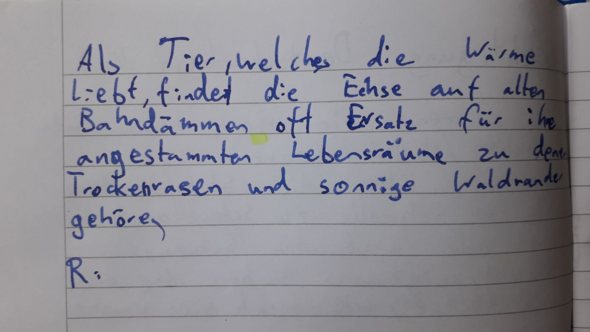 Als Tier, welches die Wärme
Liebt, findet die Echse auf alten
Bahndämmen oft Ersatz für ihe
angestammten Lebensräume zu dene
Trockenrasen und sonnige Waldrande
gehören
R: